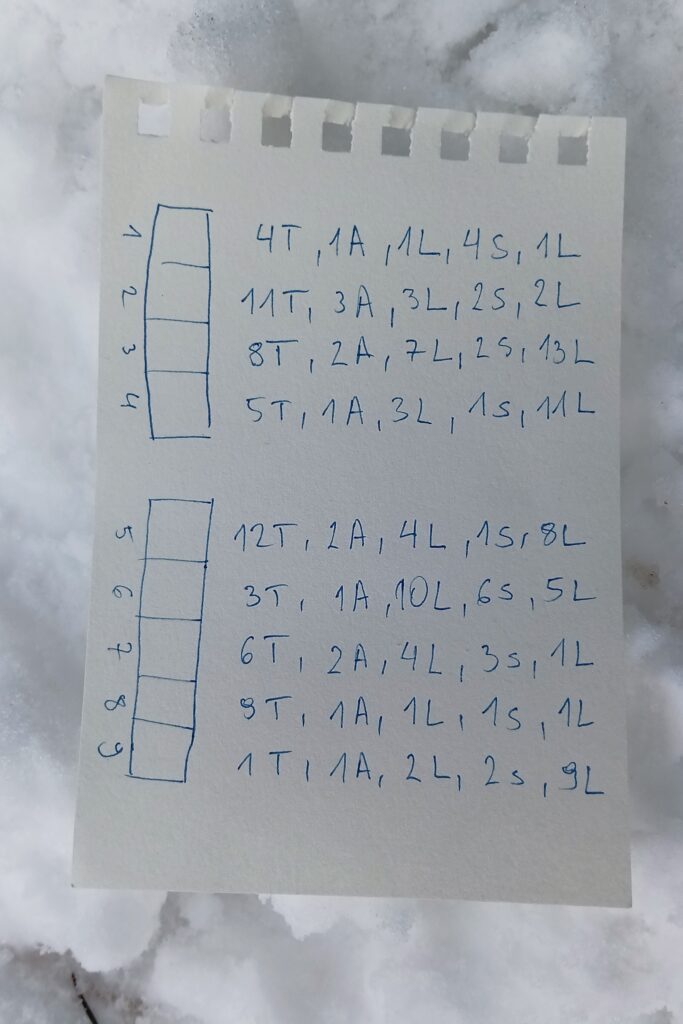 1 4T, 1A, 1L, 4S, 1L
2 11T, 3A, 3L, 2S, 2L
3 8T, 2A, 7L, 2S, 13L
4 5T, 1A, 3L, 1S, 11L
5 12T, 2A, 4L, 1S, 8L
6 3T, 1A, 10L, 6S, 5L
7 6T, 2A, 4L, 3S, 1L
8 9T, 1A, 1L, 1S, 1L
9 1T, 1A, 2L, 2S, 9L